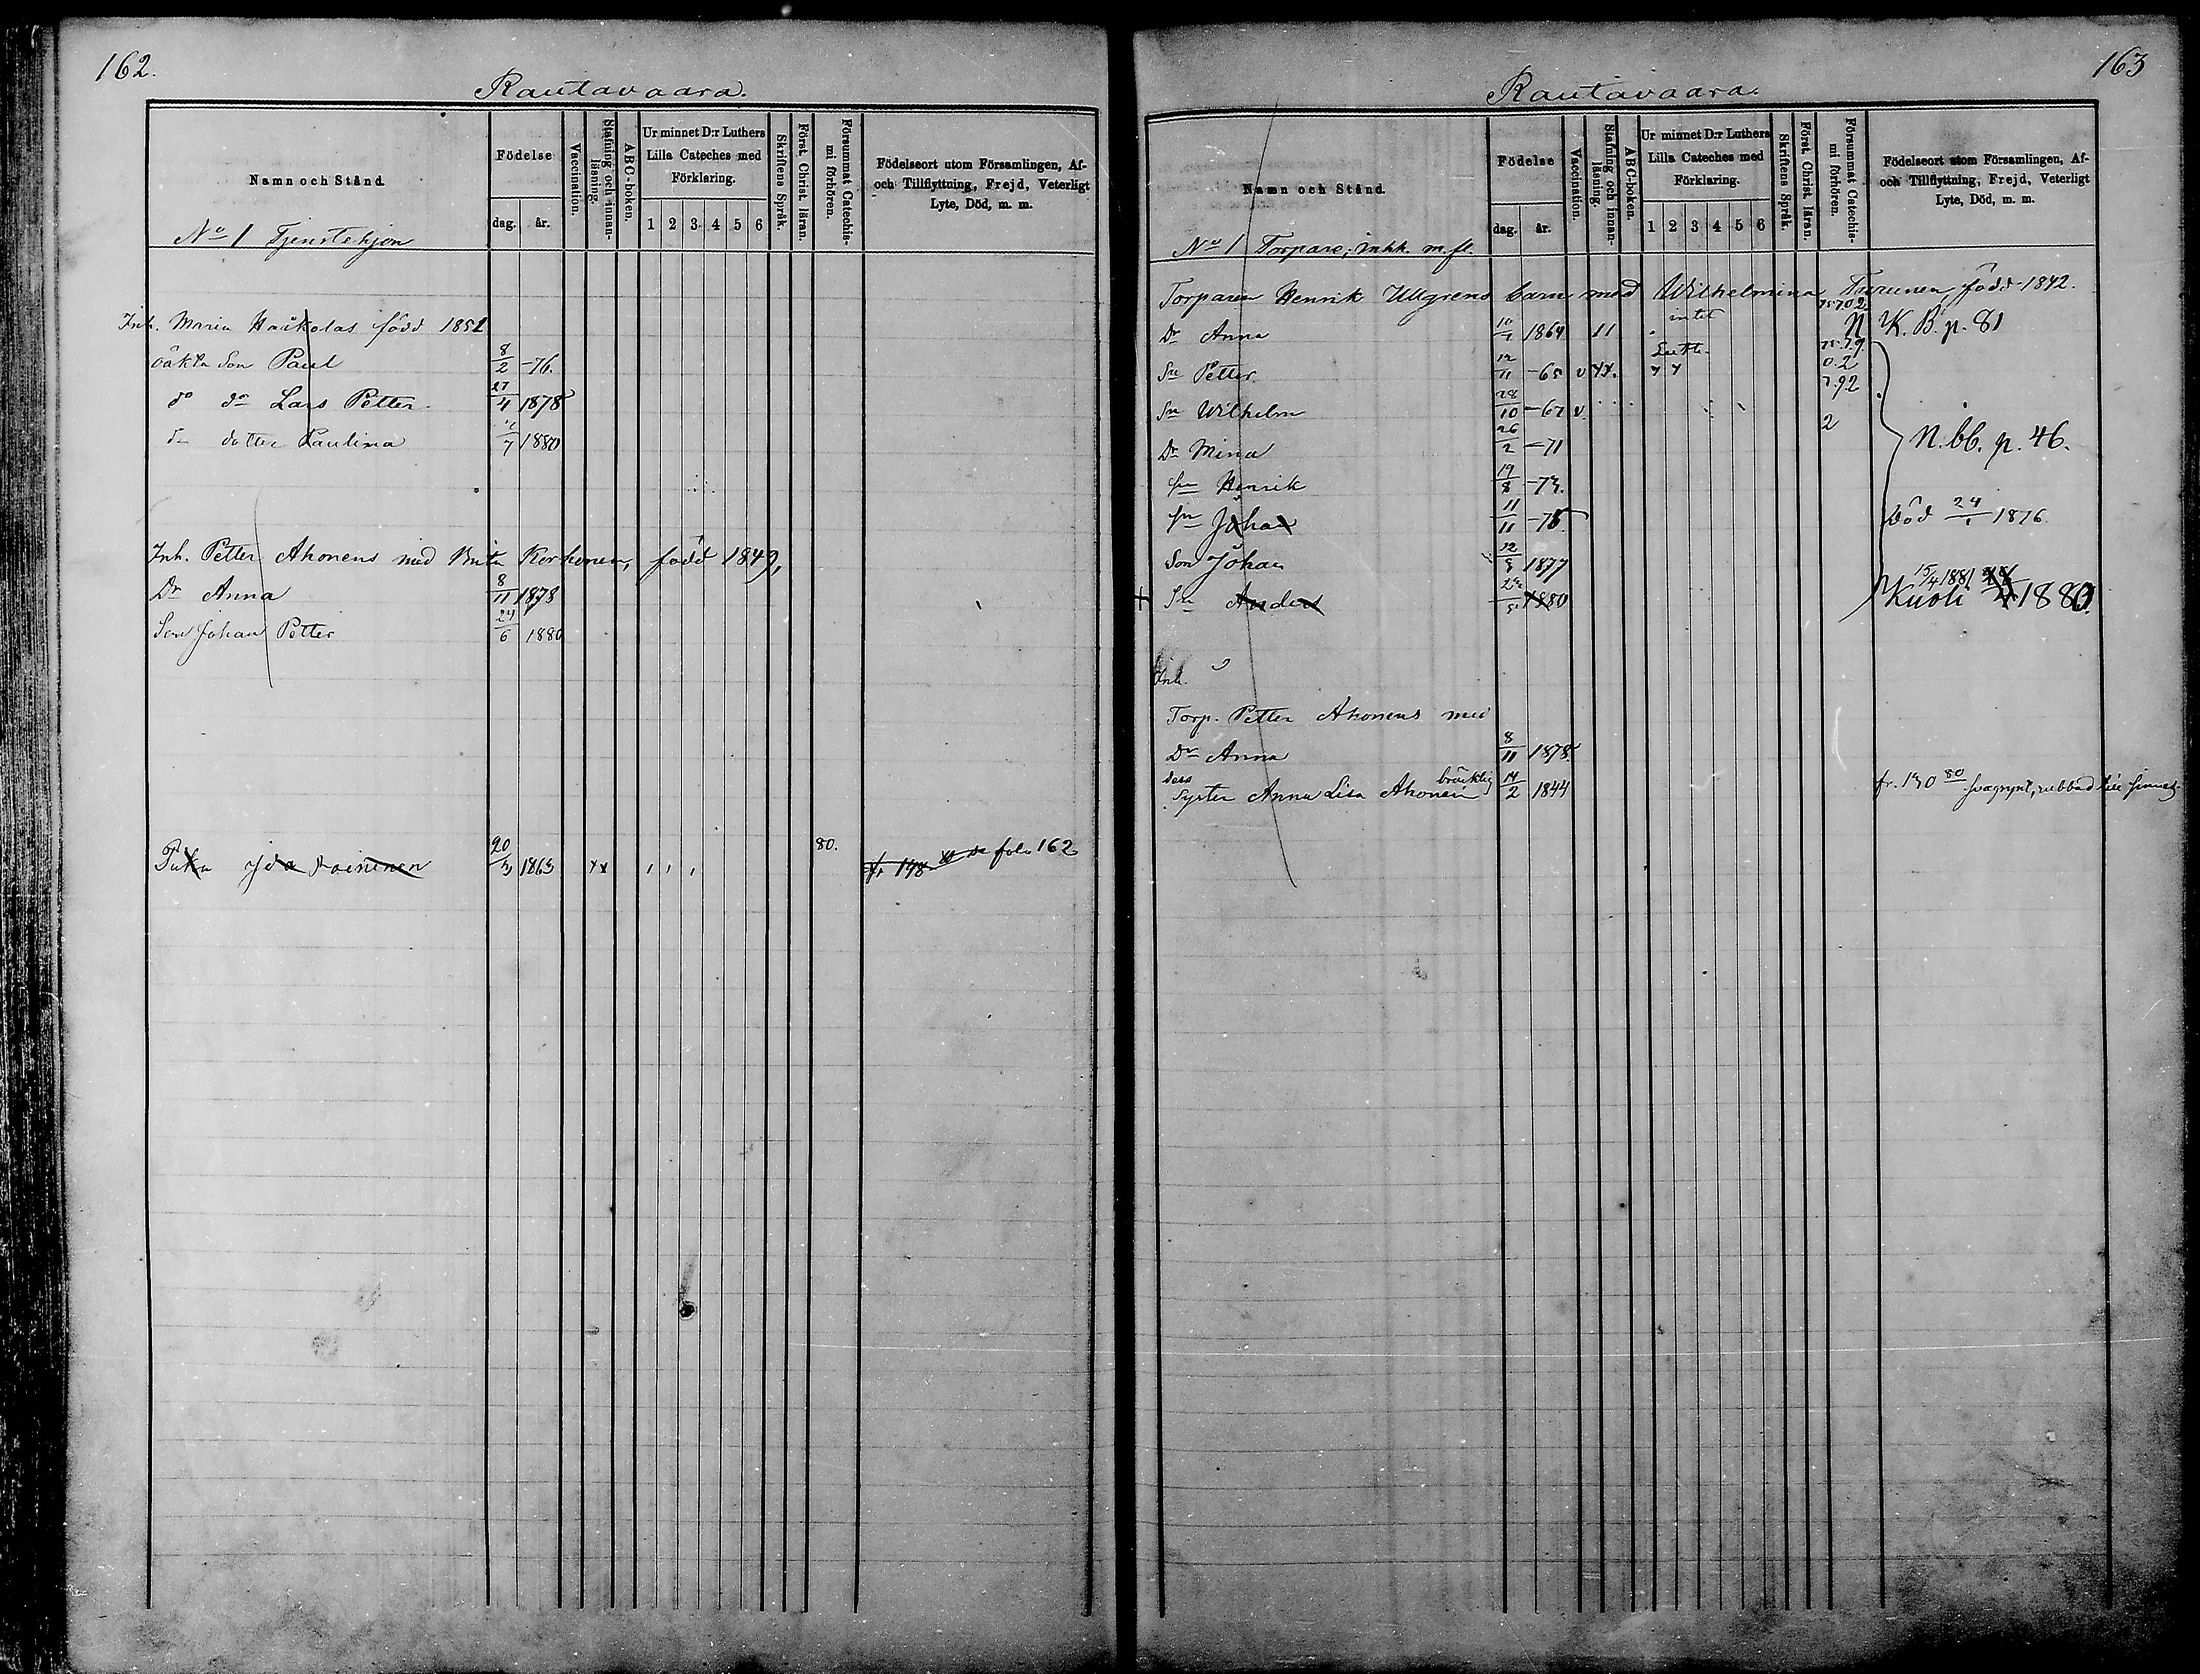 162.
Rautavaara.
Namn och Stånd.
Födelse
dag. år.
Vaccination.
Stafning och innan-
läsning.
ABC-boken.
Ur minnet D:r Luthers
Lilla Cateches med
Förklaring.
1 2 3 4 5 6
Skriftens Språk.
Först. Christ. läran.
Försummat Catechis-
mi förhören.
Födelseort utom Församlingen, Af-
och Tillflyttning, Frejd, Veterligt
Lyte, Död, m. m.
No 1 Tjenstehjon
Inh. Maria Haikolas född 1851
oäkta Son Paul 8/2 -76.
do do Lars Petter 27/4 1878
do dotter Paulina /7 1880
Inh. Petter Ahonens med Brita Korhonen, född 1849,
Dr Anna 8/11 1878
Son Johan Petter 24/6 1880
Ida 20/3 1863 80. fr 148 folio 162
163
Rautavaara.
Namn och Stånd.
Födelse
dag. år.
Vaccination.
Stafning och innan-
läsning.
ABC-boken.
Ur minnet D:r Luthers
Lilla Cateches med
Förklaring.
1 2 3 4 5 6
Skriftens Språk.
Först. Christ. läran.
Försummat Catechis-
mi förhören.
Födelseort utom Församlingen, Af-
och Tillflyttning, Frejd, Veterligt
Lyte, Död, m. m.
No 1 Torpare, inhh. m fl.
Torparen Henrik Ullgrens barn med Wilhelmina Turunen född 1842.
Dr Anna 1864 11 intet K. B. p. 81
Sn Petter 12/11 -65 v
Sn Wilhelm 28/10 -67 v.
Dr Mina 26/2 -71 2 N. bb. p. 46.
Sn Henrik 19/8 -73.
Sn Johan 11/11 -75 Död 24/1 1876.
Son Johan 12/8 1877
15/4 1881
Sn Anders 1880 Kuoli 1880.
Inh.
Torp. Petter Ahonens med
Dr Anna 8/11 1878
dess bräcklig
Syster Anna Lisa Ahonen 14/2 1844 fr. 140 80 svagsynt, rubbad till sinnet.